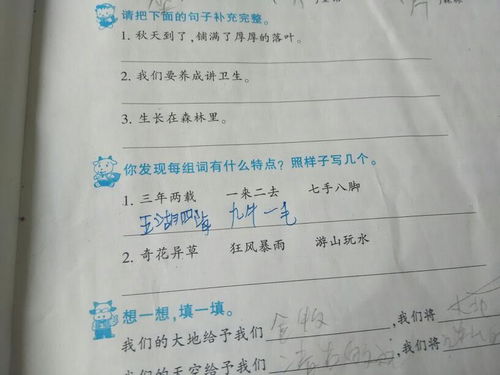 请把下面的句子补充完整。
1. 秋天到了,铺满了厚厚的落叶。
2. 我们要养成讲卫生。
3. 生长在森林里。
你发现每组词有什么特点?照样子写几个。
1. 三年两载 一来二去 七手八脚
五湖四海 九牛一毛
2. 奇花异草 狂风暴雨 游山玩水
想一想,填一填。
我们的大地给予我们 ,我们将
我们的天空给予我们 ,我们将